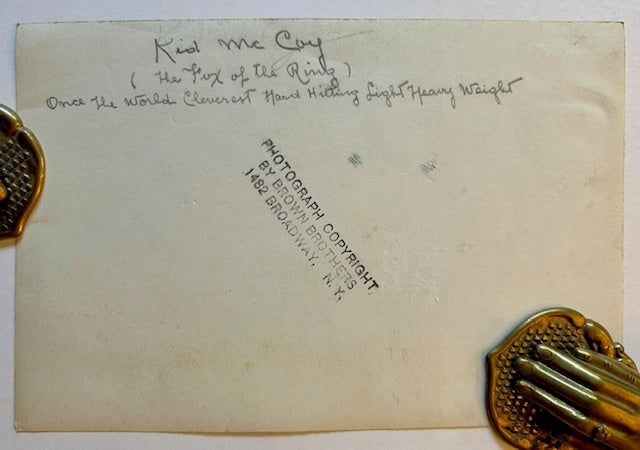 Kid McCoy
(The Fox of the Ring)
Once The World Cleverest Hard Hitting Light Heavy Weight
PHOTOGRAPH COPYRIGHT
BY BROWN BROTHERS
1482 BROADWAY, N.Y.